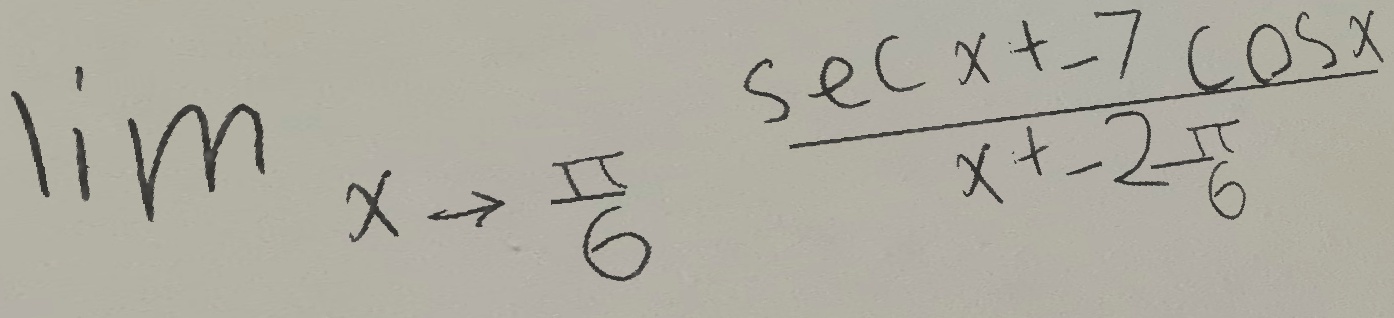 lim x → π/6 (sec x + -7 cos x)/(x + -2 π/6)